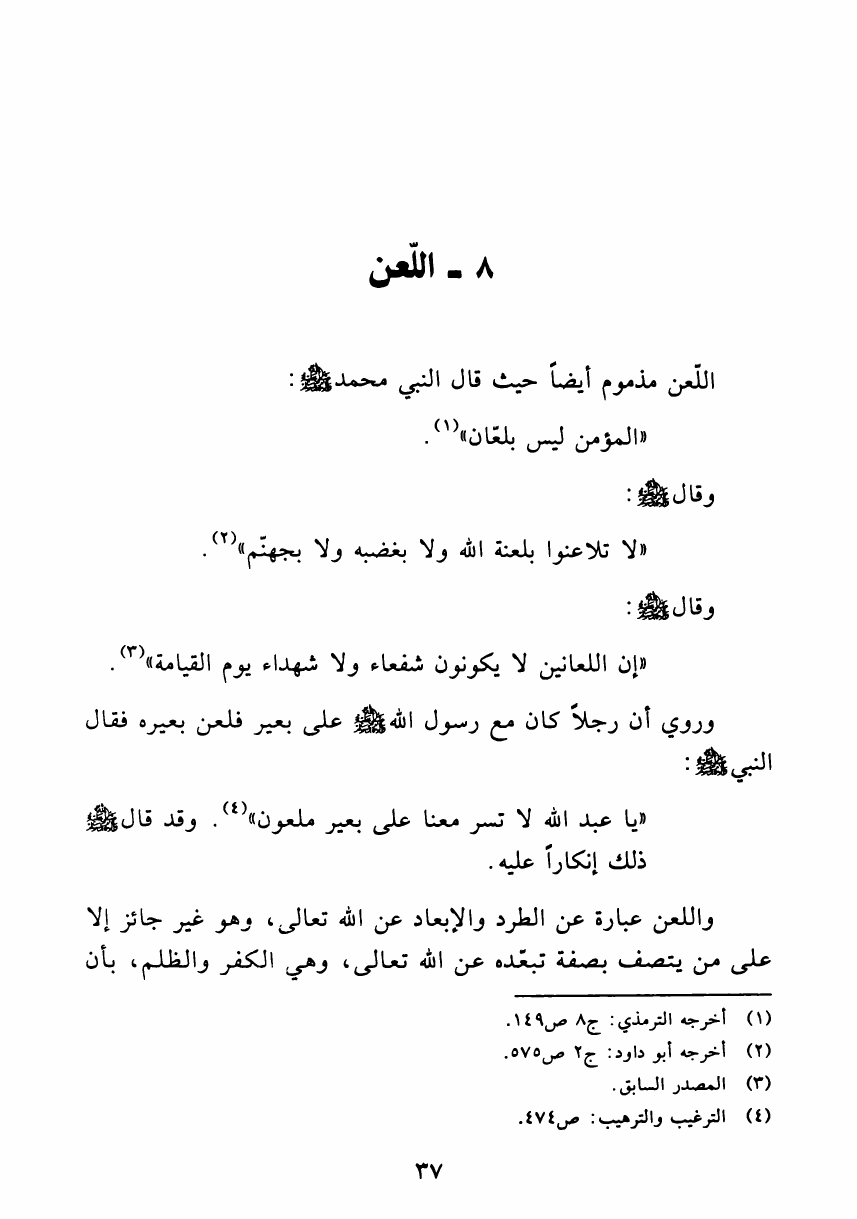 ٨ - اللّعن
اللّعن مذموم أيضاً حيث قال النبي محمد ﷺ :
«المؤمن ليس بلعّان»(١).
وقال ﷺ :
«لا تلاعنوا بلعنة الله ولا بغضبه ولا بجهنّم»(٢).
وقال ﷺ :
«إن اللعانين لا يكونون شفعاء ولا شهداء يوم القيامة»(٣).
وروي أن رجلاً كان مع رسول الله ﷺ على بعير فلعن بعيره فقال
النبي ﷺ :
«يا عبد الله لا تسر معنا على بعير ملعون»(٤). وقد قال ﷺ
ذلك إنكاراً عليه.
واللعن عبارة عن الطرد والإبعاد عن الله تعالى، وهو غير جائز إلا
على من يتصف بصفة تبعّده عن الله تعالى، وهي الكفر والظلم، بأن
(١) أخرجه الترمذي: ج٨ ص١٤٩.
(٢) أخرجه أبو داود: ج٢ ص٥٧٥.
(٣) المصدر السابق.
(٤) الترغيب والترهيب: ص٤٧٤.
٣٧